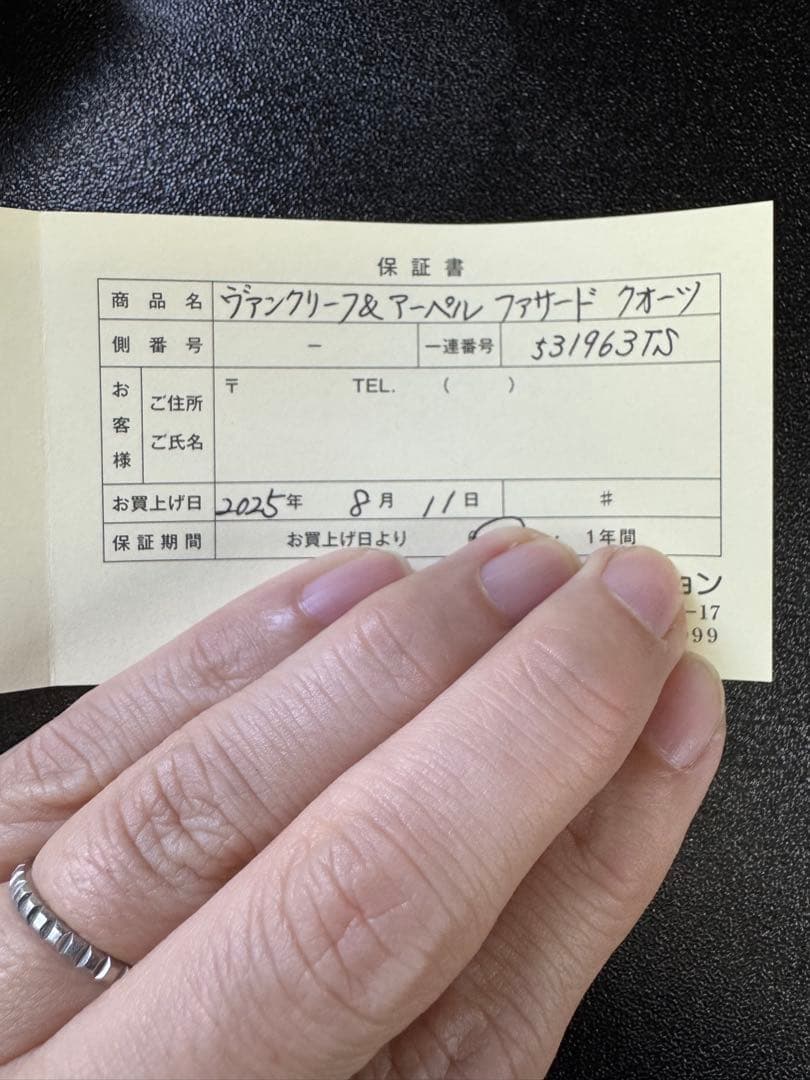 保証書
商品名 ヴァンクリーフ&アーペル ファサード クオーツ
側番号 − 一連番号 531963TS
お客様 ご住所 ご氏名 〒 TEL. ( )
お買上げ日 2025年 8月 11日 #
保証期間 お買上げ日より 1年間
ョン
-17
99